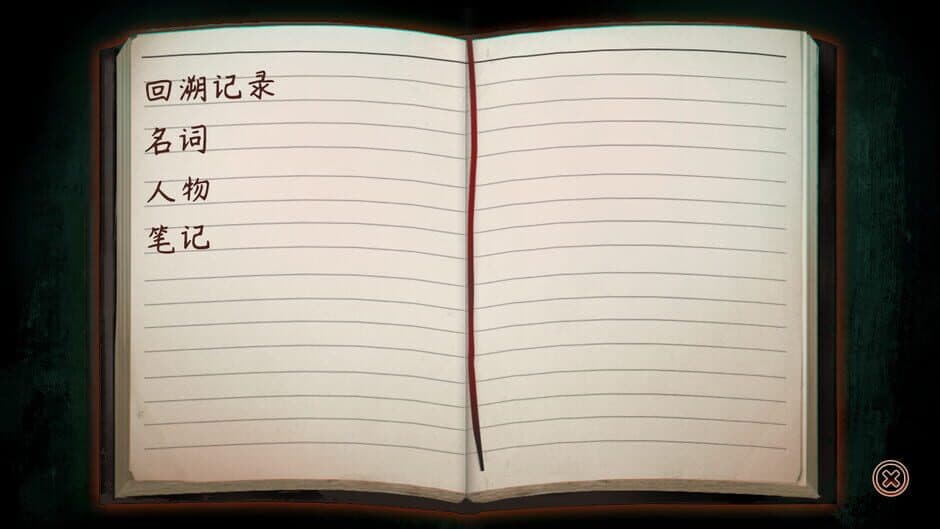 回溯记录
名词
人物
笔记